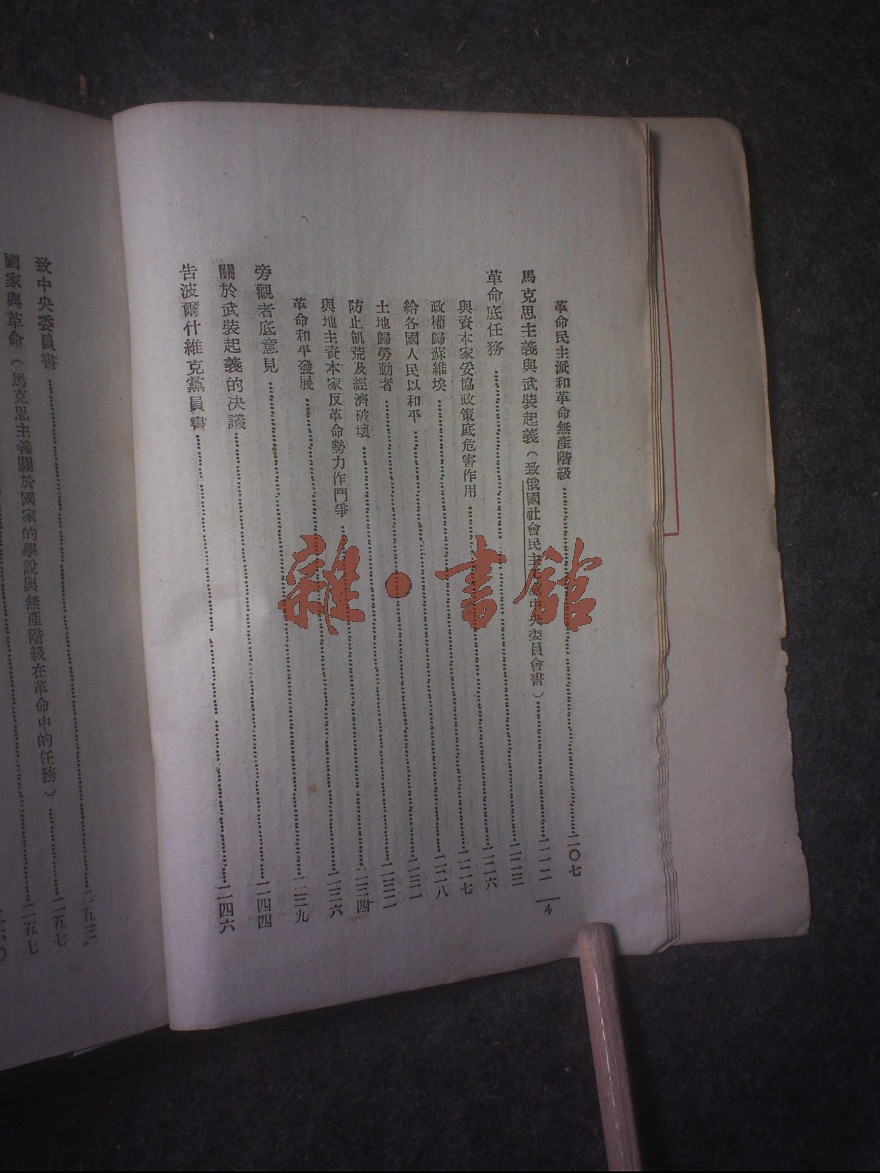 革命民主派和革命無產階級……二〇七
馬克思主義與武裝起義（致俄國社會民主 中央委員會書）……二一二
革命底任務……二二三
與資本家妥協政策底危害作用……二二六
政權歸蘇維埃……二二七
給各國人民以和平……二二八
土地歸勞動者……二三一
防止飢荒及經濟破壞……二三二
與地主資本家反革命勢力作鬥爭……二三四
革命和平發展……二三六
旁觀者底意見……二三九
關於武裝起義的決議……二四四
告波爾什維克黨員書……二四六
4
致中央委員書……二五三
國家與革命（馬克思主義關於國家的學說與無產階級在革命中的任務）……二五七
二五七
二六〇
雜·書館